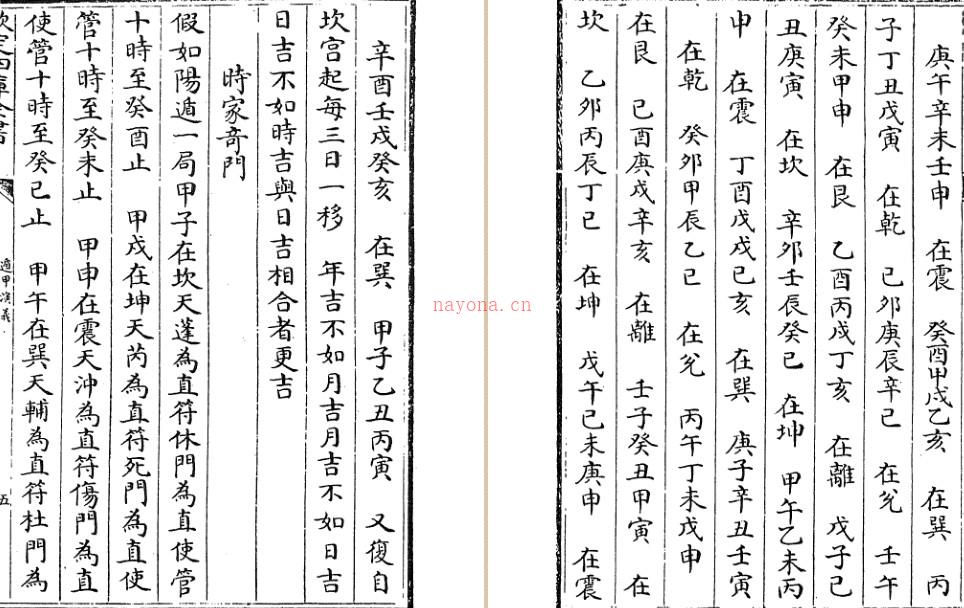 庚午辛未壬申　在震　癸酉甲戌乙亥　在巽　丙
子丁丑戊寅　在乾　己卯庚辰辛巳　在兌　壬午
癸未甲申　在艮　乙酉丙戌丁亥　在離　戊子己
丑庚寅　在坎　辛卯壬辰癸巳　在坤　甲午乙未丙
申　在震　丁酉戊戌己亥　在巽　庚子辛丑壬寅
在乾　癸卯甲辰乙巳　在兌　丙午丁未戊申
在艮　己酉庚戌辛亥　在離　壬子癸丑甲寅　在
坎　乙卯丙辰丁巳　在坤　戊午己未庚申　在震
辛酉壬戌癸亥　在巽　甲子乙丑丙寅　又復自
坎宮起每三日一移　年吉不如月吉月吉不如日吉
日吉不如時吉與日吉相合者更吉
時家奇門
假如陽遁一局甲子在坎天蓬為直符休門為直使管
十時至癸酉止　甲戌在坤天芮為直符死門為直使
管十時至癸未止　甲申在震天沖為直符傷門為直
使管十時至癸巳止　甲午在巽天輔為直符杜門為
欽定四庫全書
遁甲演義
五
nayona.cn